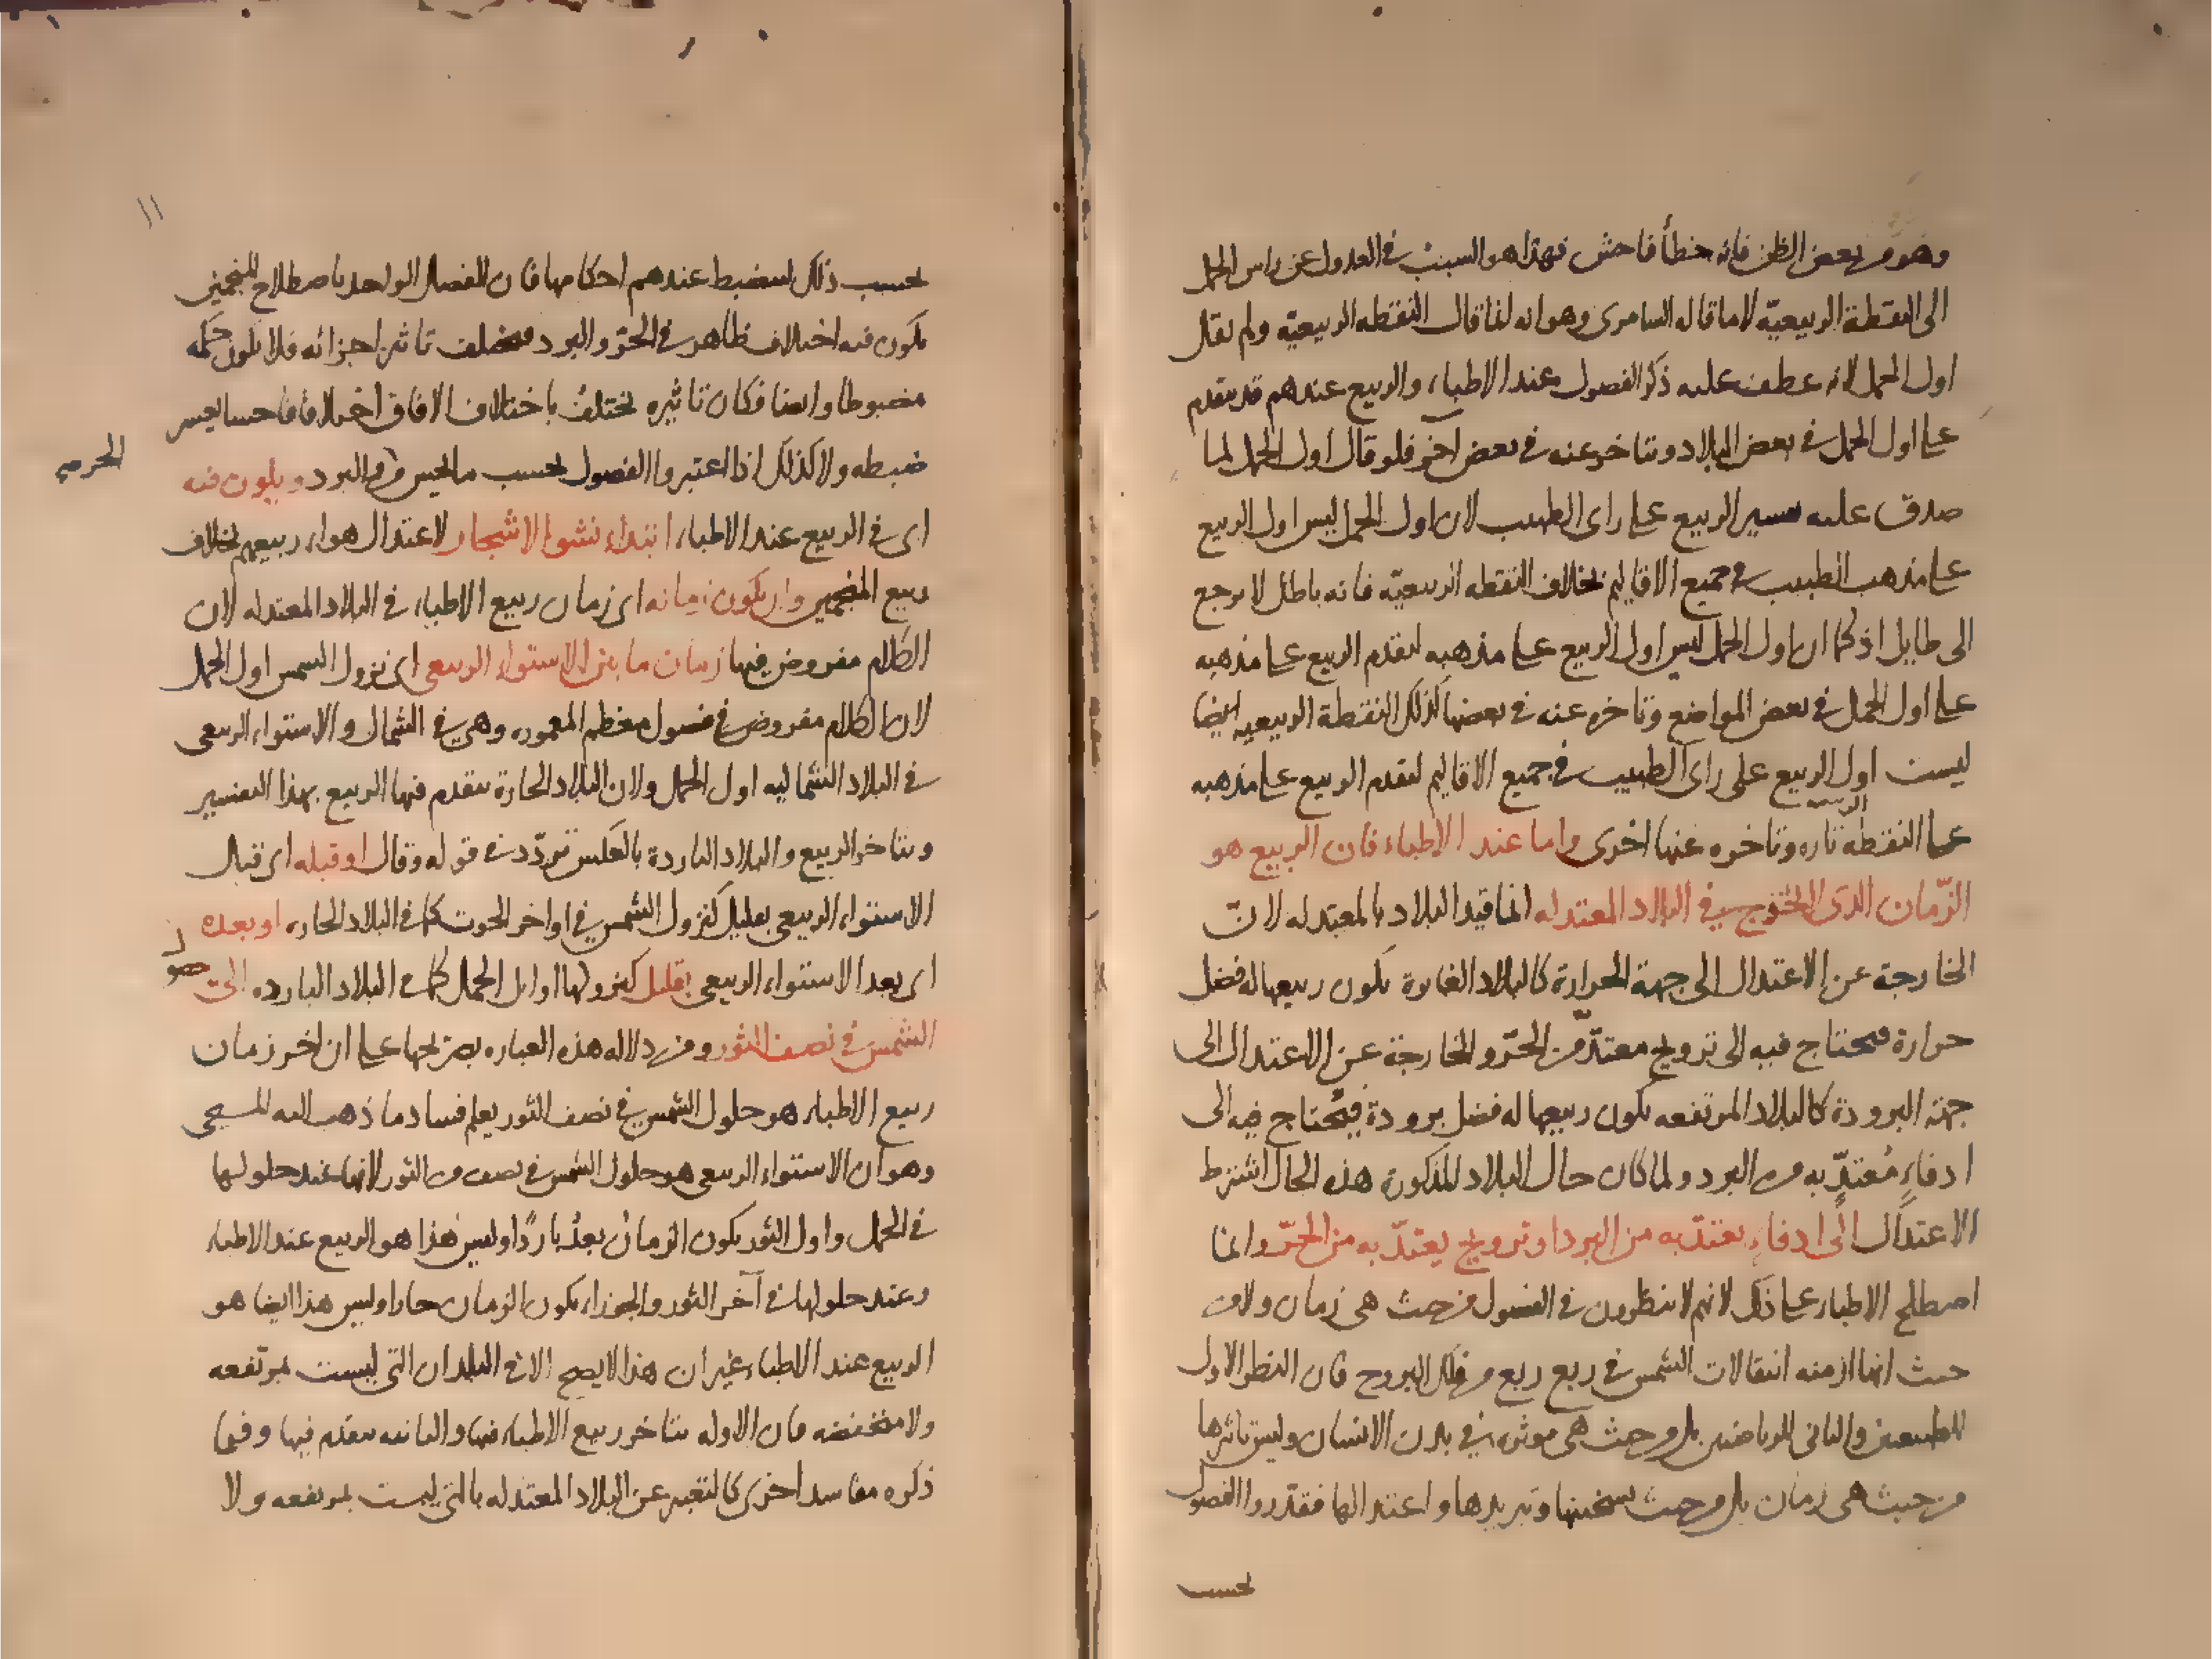 وهو من بعض الظن فانه خطأ فاحش فهذا هو السبب في العدول عن راس الحمل
الى النقطة الربيعيّة لا ما قاله السامري وهو انه انما قال النقطه الربيعيّة ولم يقل
اول الحمل لانه عطف عليه ذكر الفصول عند الاطباء والربيع عندهم قد يتقدم
على اول الحمل في بعض البلاد ويتاخر عنه في بعض آخر فلو قال اول الحمل لما
صدق عليه الربيع على راى الطبيب لان اول الحمل ليس اول الربيع
على مذهب الطبيب في جميع الاقاليم بخلاف النقطه الربيعيّة فانه باطل لا يرجع
الى طايل اذ كما ان اول الحمل ليس اول الربيع على مذهبه لتقدم الربيع على مذهبه
على اول الحمل في بعض المواضع وتاخره عنه في بعضها كذلك النقطة الربيعيه ايضا
ليست اول الربيع على راى الطبيب في جميع الاقاليم لتقدم الربيع على مذهبه
على النقطه تاره وتاخره عنها اخرى واما عند الاطباء فان الربيع هو
الزّمان الذى لا يحوج في البلاد المعتدله انما قيد البلاد بالمعتدله لانّ
الخارجة عن الاعتدال الى جهة الحرارة كالبلاد الغايرة يكون ربيعها له فضل
حرارة فيحتاج فيه الى ترويح معتدّ من الحرّ والخارجة عن الاعتدال الى
جهة البرودة كالبلاد المرتفعه يكون ربيعها له فضل برودة فيُحتاج فيه الى
ادفاءٍ مُعتدٍّ به من البرد ولما كان حال البلاد المذكورة هذه الحال اشترط
الاعتدال الى ادفاءٍ يعتدّ به من البرد او ترويح يعتدّ به من الحرّ وانما
اصطلح الاطباء على ذلك لانهم لا ينظرون في الفصول من حيث هي زمان ولا من
حيث انها ازمنه انتقالات الشمس في ربع ربع من فلك البروج فان النظر الاول
للطبيعيين والثاني للرياضيين بل من حيث هي موثره في بدن الانسان وليس تاثيرها
من حيث هي زمان بل من حيث تسخينها وتبريدها واعتدالها فقدّروا الفصول
بحسب
١١
بحسب ذلك لينضبط عندهم احكامها فان الفصل الواحد باصطلاح المنجمين
يكون فيه اختلاف ظاهر في الحرّ والبرد فيختلف تاثير اجزائه فلا يكون حكمه
مضبوطا وايضا فكان تاثيره يختلفُ باختلاف الافاق اختلافا فاحشا يعسر
ضبطه ولا كذلك اذا اعتبروا الفصول بحسب ما يحس من البرد ويكون فيه
اى في الربيع عند الاطباء ابتداء نشو الاشجار لاعتدال هواء ربيعهم بخلاف
ربيع المنجمين وان يكون زمانه اى زمان ربيع الاطباء في البلاد المعتدله لان
الكلام مفروض فيها زمان ما بين الاستواء الربيعى اى نزول الشمس اول الحمل
لان الكلام مفروض في فصول معظم المعموره وهي في الشمال والاستواء الربيعى
في البلاد الشماليه اول الحمل ولان البلاد الحارة يتقدم فيها الربيع بهذا التفسير
ويتاخر الربيع والبلاد الباردة بالعكس تردّد في قوله وقال او قبله اى قبل
الاستواء الربيعى بقليل كنزول الشمس في اواخر الحوت كما في البلاد الحاره او بعده
اى بعد الاستواء الربيعى بقليل كنزولها اوايل الحمل كما في البلاد البارده الى
حصول
الشمس في نصف الثور ومن دلاله هذه العباره بصريحها على ان اخر زمان
ربيع الاطباء هو حلول الشمس في نصف الثور يعلم فساد ما ذهب اليه المسيحى
وهو ان الاستواء الربيعى هو حلول الشمس في نصف من الثور لانها عند حلولها
في الحمل واول الثور يكون الزمان بعدُ باردًا وليس هذا هو الربيع عند الاطباء
وعند حلولها في آخر الثور والجوزاء يكون الزمان حارا وليس هذا ايضا هو
الربيع عند الاطباء غير ان هذا لا يصح الا في البلدان التي ليست بمرتفعه
ولا منخفضه فان الاوله يتاخر ربيع الاطباء فيها والثانيه يتقدم فيها وفيما
ذكره مفاسد اخرى كالتعبير عن البلاد المعتدله بالتي ليست بمرتفعه ولا